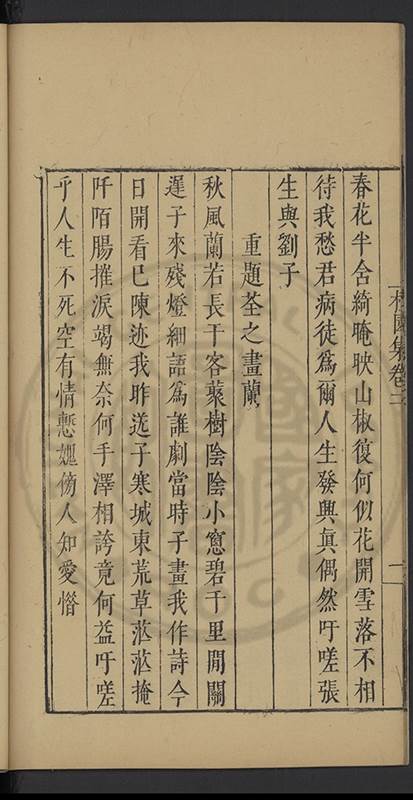 春花半舍綺晻映山椒復何似花開雪落不相
待我愁君病徒爲爾人生發興眞偶然吁嗟張
生與劉子
重題荃之畫蘭
秋風蘭若長干客藂樹陰陰小窻碧千里開關
遲子來殘燈細語爲誰劇當時子畫我作詩今
日開看已陳迹我昨送子寒城東荒草茫茫掩
阡陌腸摧淚竭無奈何手澤相誇竟何益吁嗟
乎人生不死空有情慙媿傍人知愛惜
園集卷二
一